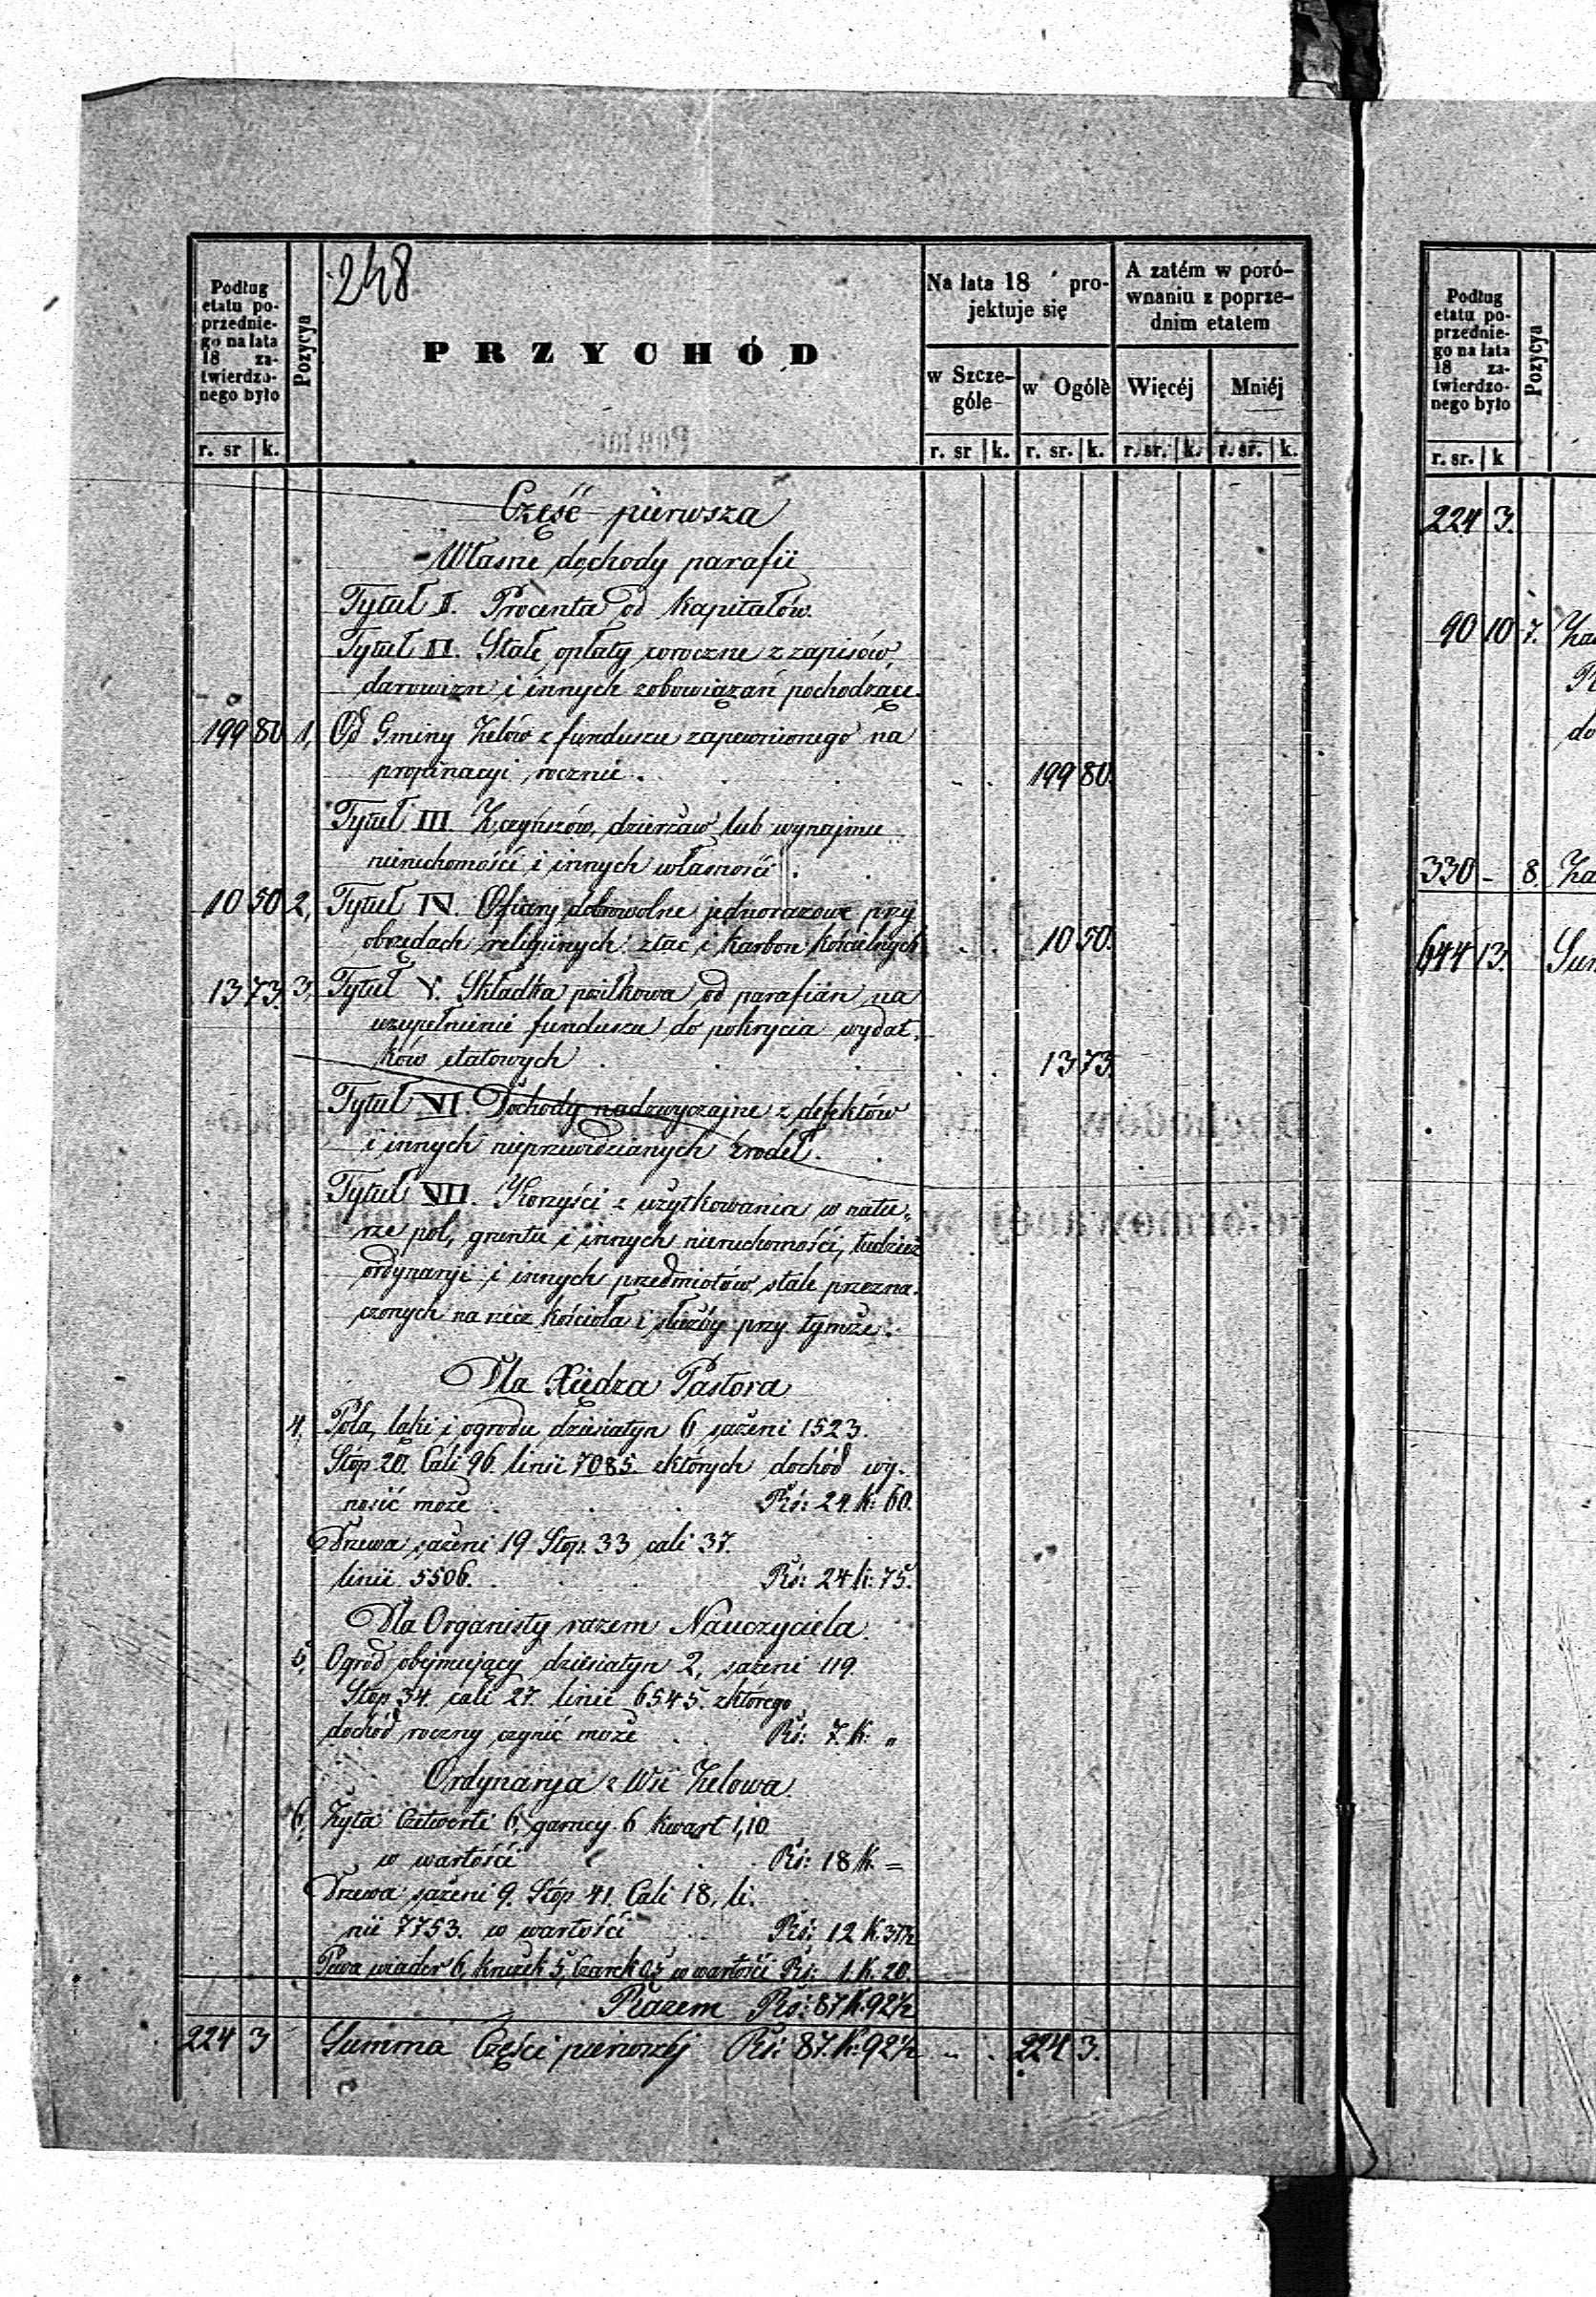 248
Podług
etatu po-
przednie-
go na lata
18 za-
twierdzo-
nego było
r. sr k.
Pozycya
PRZYCHÓD
Na lata 18 pro-
jektuje się
w Szcze-
góle
w Ogóle
r. sr k. r. sr. k.
A zatém w poró-
wnaniu z poprze-
dnim etatem
Więcéj Mniéj
r. sr. k. r. sr. k.
Część pierwsza
Własne dochody parafii
Tytuł I. Procenta od kapitałów.
Tytuł II. Stałe opłaty coroczne z zapisów,
darowizn i innych zobowiązań pochodzące.
199 80 1, Od Gminy Zelów z funduszu zapewnionego na
propinacyi rocznie . 199 80.
Tytuł III. Z czynszów, dzierżaw lub wynajmu
nieruchomości i innych własności .
10 50 2, Tytuł IV. Ofiary dobrowolne jednorazowe przy
obrzędach religijnych z tac i karbon kościelnych 10 50.
13 73. 3, Tytuł V. Składka posiłkowa od parafian na
uzupełnienie funduszu do pokrycia wydat-
ków etatowych . 13 73.
Tytuł VI. Dochody nadzwyczajne z defektów
i innych nieprzewidzianych źrodeł.
Tytuł VII. Korzyści z użytkowania w natu-
rze pol, gruntu i innych nieruchomości, tudzież
ordynaryi i innych przedmiotów stale przezna-
czonych na rzecz kościoła i służby przy tymże.
Dla Xiędza Pastora
4, Pola, łąki i ogrodu dziesiatyn 6 sażeni 1523.
Stóp 20. Cali 96. linii 7085 z których dochód wy-
nosić może . Rs: 24. k: 60.
Drzewa sażeni 19 Stop. 33 cali 37.
linii 5506. Rs: 24 k: 75.
Dla Organisty razem Nauczyciela.
5, Ogród obejmujący dziesiatyn 2, sażeni 119.
Stop 34. cali 27. linii 6545. z którego
dochód roczny czynić może . . Rs: 7. K: "
Ordynarya z Wsi Zelowa.
6, Żyta Czetwerti 6, garncy 6 kwart 1,10
w wartości . Rs: 18 K. =
Drzewa sażeni 9. Stóp 41. Cali 18, li-
nii 7753. w wartości Rs: 12 K. 37½
Piwa wiader 6, krużek 5, Czarek w wartości Rs: 1. K. 20.
Razem Rs: 87 K: 92½
224 3 Summa Części pierwszéj Rs: 87. K: 92½ 224 3.
Podług
etatu po-
przednie-
go na lata
18 za-
twierdzo-
nego było
r. sr. k
Pozycya
224 3.
90 10 7.
do
330 - 8.
644 13.